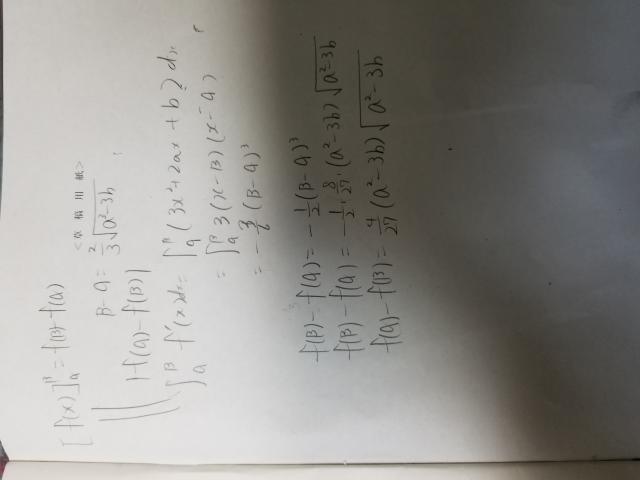 <草稿用紙>
[f(x)]_α^β = f(β) - f(α)
β - α = 2/3 √(a²-3b)
|f(α) - f(β)|
∫_α^β f'(x)dx = ∫_α^β (3x²+2ax+b) dx
= ∫_α^β 3(x-β)(x-α)
= -3/6 (β-α)³
f(β) - f(α) = -1/2 (β-α)³
f(β) - f(α) = -1/2 · 8/27 · (a²-3b) √(a²-3b)
f(α) - f(β) = 4/27 (a²-3b) √(a²-3b)